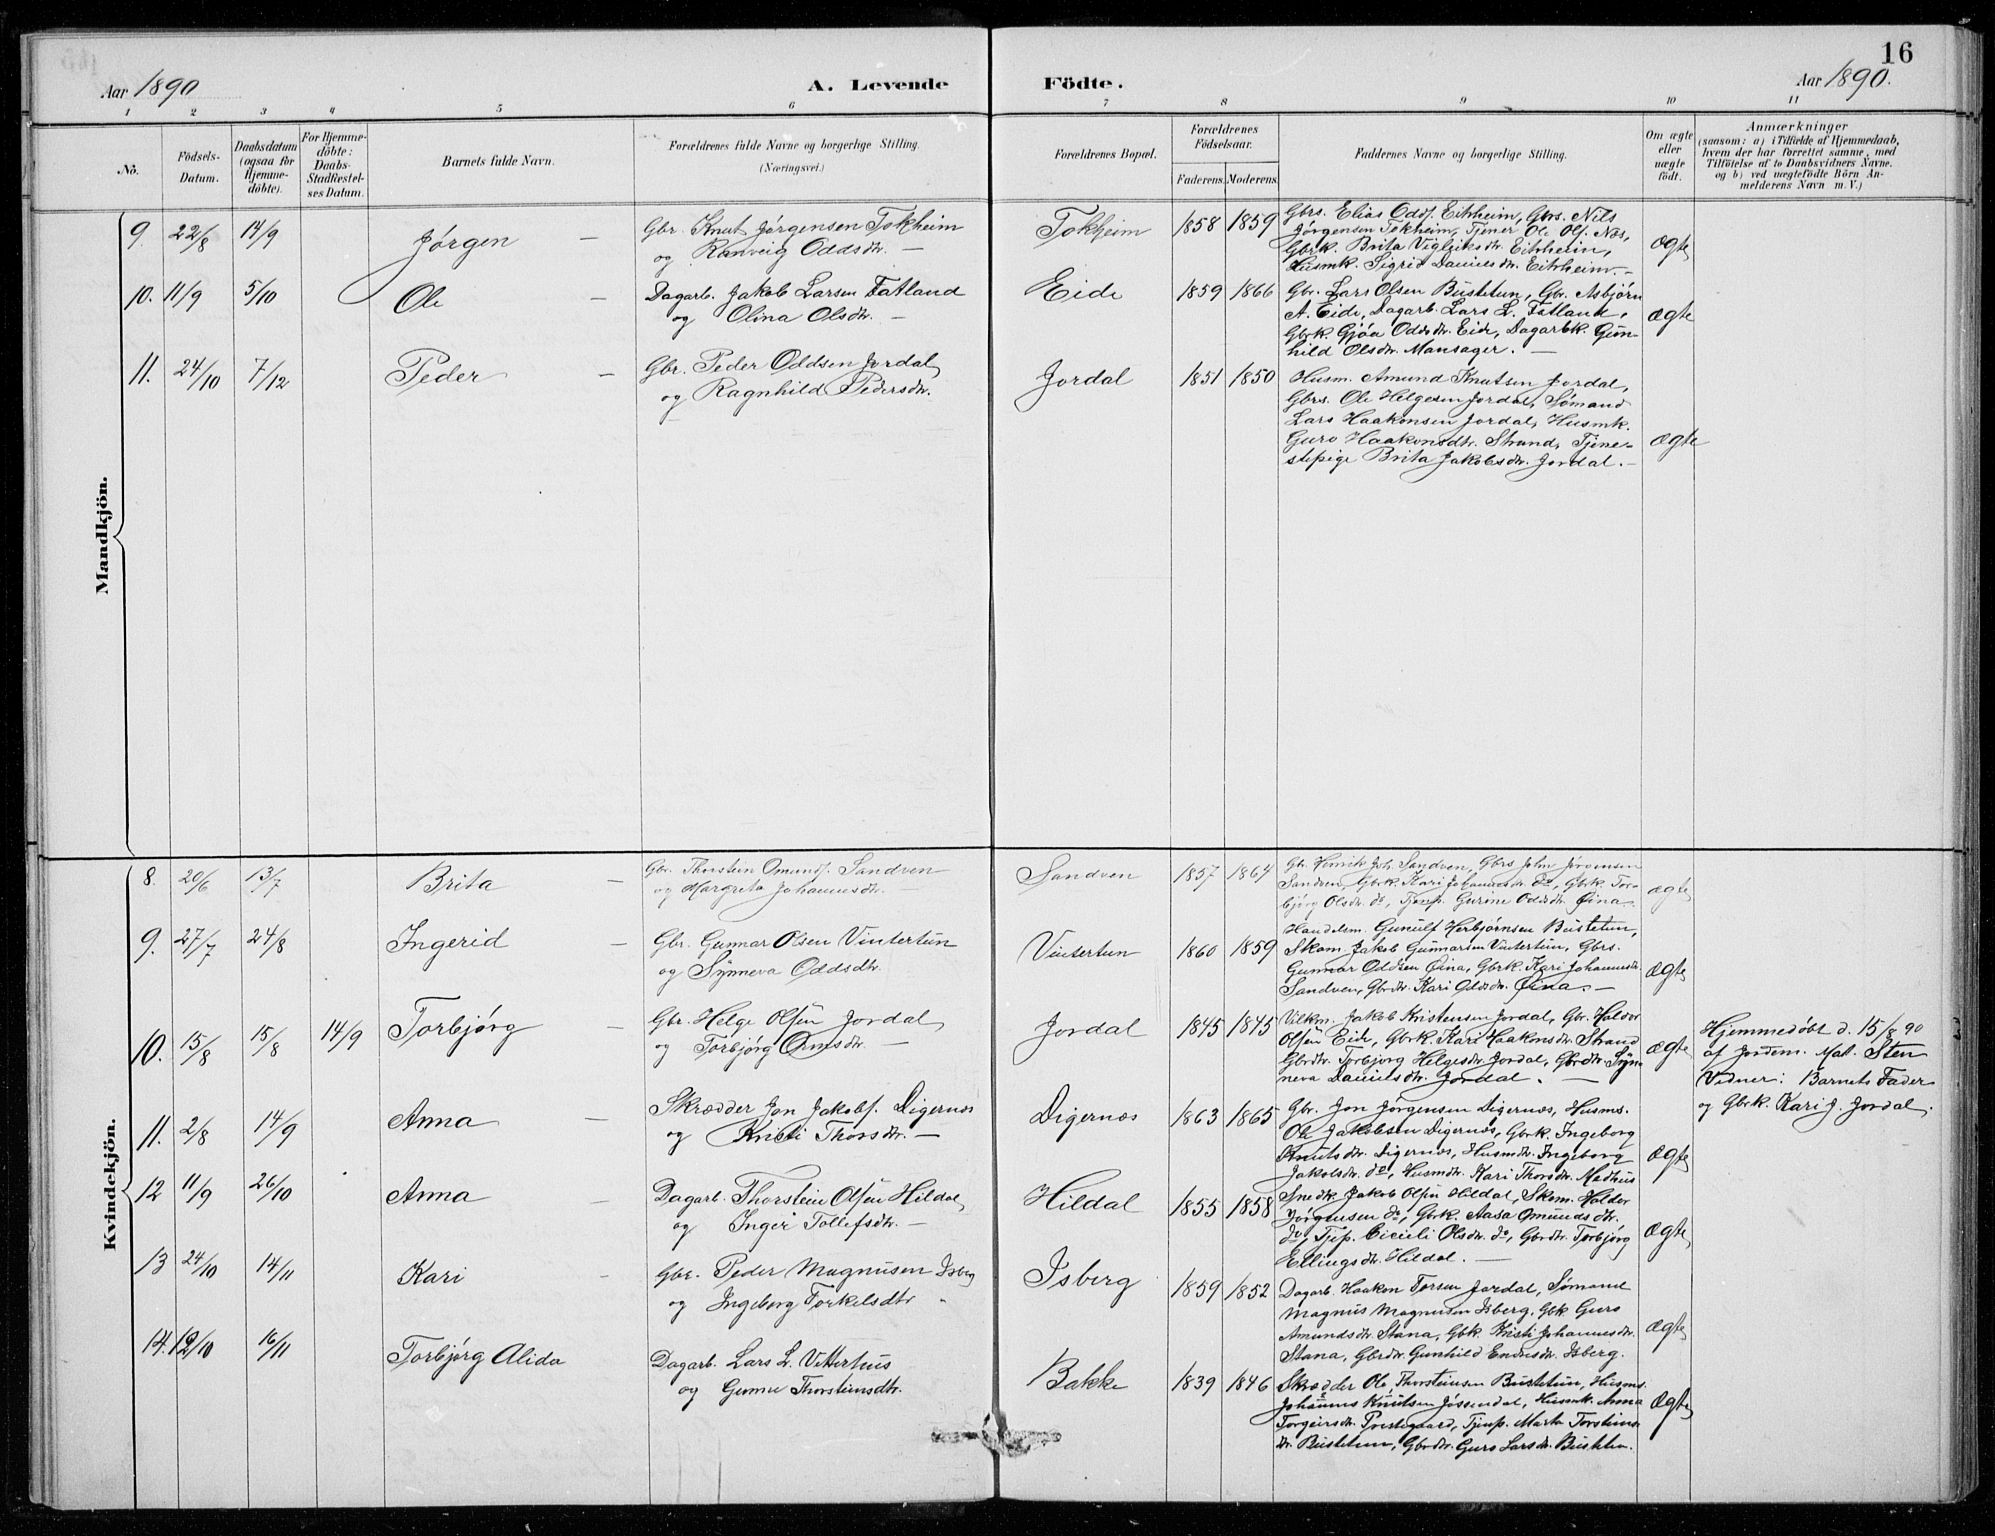 16
Aar 1890
A. Levende
Födte.
Aar 1890.
1 2 3 4 5 6 7 8 9 10 11
No.
Födsels-
Datum.
Daabsdatum
(ogsaa for
Hjemme-
döbte).
For Hjemme-
döbte:
Daabs-
Stadfæstel-
ses Datum.
Barnets fulde Navn.
Forældrenes fulde Navne og borgerlige Stilling.
(Næringsvei.)
Forældrenes Bopæl.
Forældrenes
Födselsaar.
Faderens.
Moderens.
Faddernes Navne og borgerlige Stilling.
Om ægte
eller
uægte
födt.
Anmærkninger
(saasom: a) i Tilfælde af Hjemmedaab,
hvem der har forrettet samme, med
Tilföielse af to Daabsvidners Navne,
og b) ved uægtefödte Börn An-
melderens Navn m. V.)
Mandkjön.
9. 22/8 14/9 Jørgen —
Gbr. Knut Jørgensen Tokheim
og Ranveig Oddsdtr. —
Tokheim 1858 1859
Gbrs. Elias Odds. Eitrheim, Gbrs. Nils
Jørgensen Tokheim, Tjener Ole Ols. Næs,
Gbrk. Brita Vigleiksdtr. Eitrheim,
Husmk. Sigrid Danielsdtr. Eitrheim. —
ægte
10. 11/9 5/10 Ole —
Dagarb. Jakob Larsen Fatland
og Olina Olsdtr. —
Eide 1859 1866
Gbr. Lars Olsen Bustetun, Gbr. Asbjørn
A. Eide, Dagarb. Lars L. Fatland,
Gbrk. Gjøa Oddsdtr. Eide, Dagarbk. Gun-
hild Olsdtr. Mansager. —
ægte
11. 24/10 7/12 Peder —
Gbr. Peder Oddsen Jordal
og Ragnhild Pedersdtr.
Jordal 1851 1850
Husm. Amund Knutsen Jordal,
Gbrs. Ole Helgesen Jordal, Sømand
Lars Haakonsen Jordal, Husmk.
Guro Haakonsdtr. Strand, Tjene-
stepige Brita Jakobsdtr. Jordal. —
ægte
Kvindekjön.
8. 20/6 13/7 Brita —
Gbr. Thorstein Omunds. Sandven
og Margreta Johannesdtr.
Sandven 1857 1864
Gbr. Henrik Joh. Sandven, Gbrs. John Jørgensen
Sandven, Gbrk. Kari Johannesdtr. do, Gbrk. Tor-
bjørg Olsdtr. do, Tjenp. Gurine Oddsdtr. Øina.
ægte
9. 27/7 24/8 Ingerid —
Gbr. Gunnar Olsen Vintertun
og Synneva Oddsdtr.
Vintertun 1860 1859
Handelsm. Gunulf Herbjørnsen Bustetun,
Skom. Jakob Gunnarsen Vintertun, Gbrs.
Gunnar Oddsen Øina, Gbrk. Kari Johannesdtr.
Sandven, Gbrdtr. Kari Oddsdtr. Øina. —
ægte
10. 15/8 15/8 14/9 Torbjørg —
Gbr. Helge Olsen Jordal
og Torbjørg Ormsdtr. —
Jordal 1845 1845
Vilkm. Jakob Kristensen Jordal, Gbr. Haldor
Olsen Eide, Gbrk. Kari Haakonsdtr. Strand
Gbrdtr. Torbjørg Helgesdtr. Jordal, Gbrdtr. Syn-
neva Danielsdtr. Jordal. —
ægte
Hjemmedøbt d. 15/8 90
af Jordem. Mat. Sten
Vidner: Barnets Fader
og Gbrk. Kari J. Jordal.
11. 2/8 14/9 Anna —
Skrædder Jon Jakobs. Digernæs
og Kristi Thorsdtr. —
Digernæs 1863 1865
Gbr. Jon Jørgensen Digernæs, Husms.
Ole Jakobsen Digernæs, Gbrk. Ingeborg
Knutsdtr. Digernæs, Husmdtr. Ingeborg
Jakobsdtr. do, Husmdtr. Kari Thorsdtr. Madhus
ægte
12 11/9 26/10 Anna —
Dagarb. Thorstein Olsen Hildal
og Inger Tollefsdtr. —
Hildal 1855 1858
Snedk. Jakob Olsen Hildal, Skom. Haldor
Jørgensen do, Gbrk. Aasa Omundsdtr.
do, Tjp. Cicili Olsdtr. do, Gbrdtr. Torbjørg
Ellingsdtr. Hildal. —
ægte
13 24/10 14/11 Kari -
Gbr. Peder Magnusen Isberg
og Ingeborg Torkelsdtr.
Isberg 1859 1852
Dagarb. Haakon Torsen Jordal, Sømand
Magnus Magnusen Isberg, Gbk Guro
Amundsdtr. Stana, Gbk. Kristi Johannesdtr.
Stana, Gbrdtr. Gunhild Endresdtr. Isberg.
ægte
14. 12/10 16/11 Torbjørg Alida
Dagarb. Lars L. Vetterhus
og Gunne Thorsteinsdtr.
Bakke 1839 1846
Skrædder Ole Thorsteinsen Bustetun, Husms.
Johannes Knutsen Jøsendal, Husmk. Anna
Torgeirsdtr. Prestegaard, Tjenp. Marta Torsteins-
dtr. Bustetun, Gbrdtr. Guro Larsdtr. Bustetun.
ægte